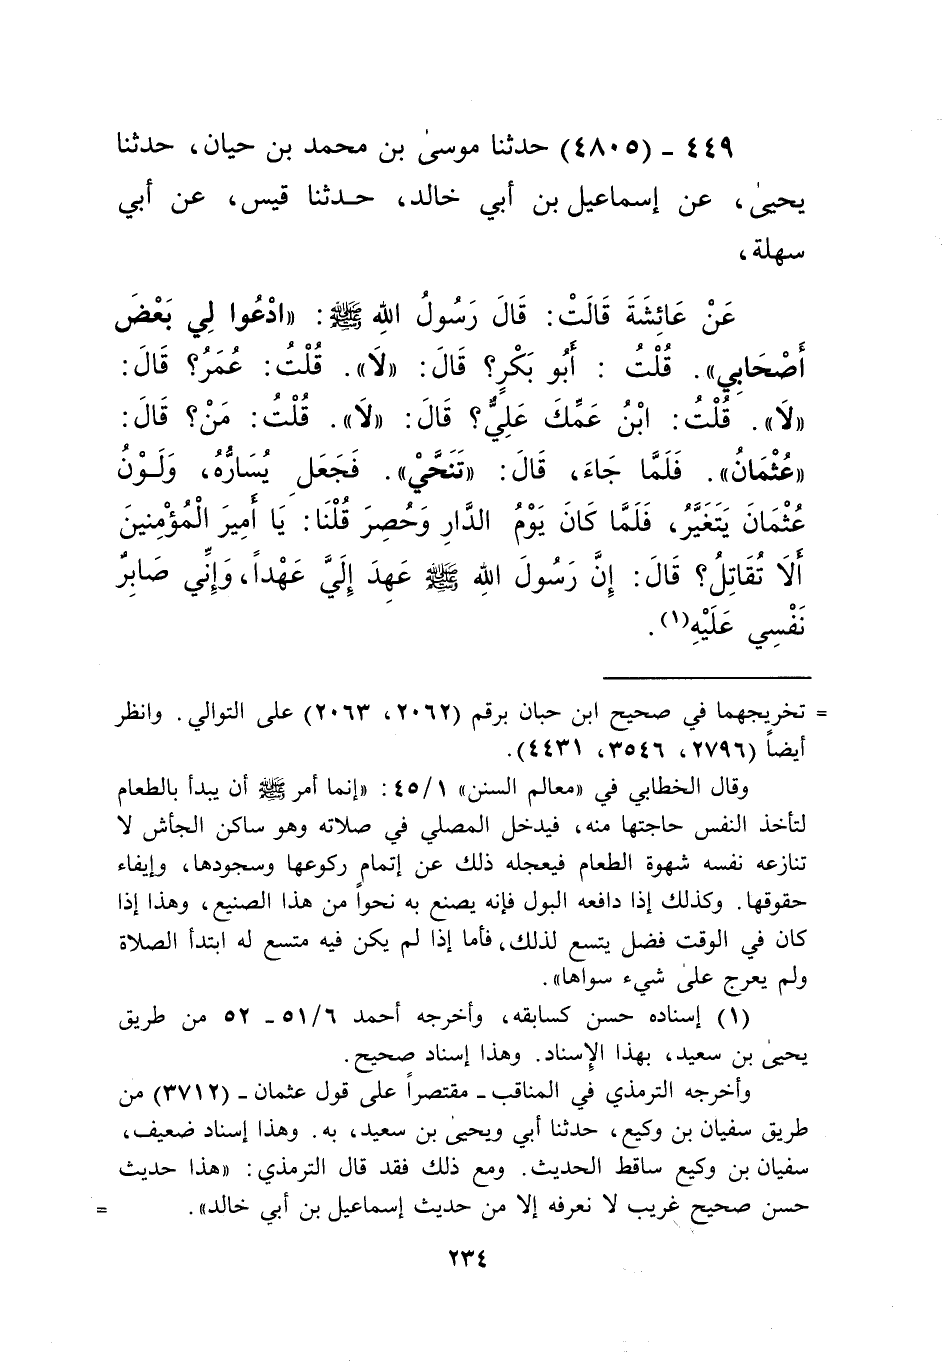 ٤٤٩ - (٤٨٠٥) حدثنا موسىٰ بن محمد بن حيان، حدثنا
يحيىٰ، عن إسماعيل بن أبي خالد، حـدثنا قيس، عن أبي
سهلة،
عَنْ عَائِشَةَ قَالَتْ: قَالَ رَسُولُ اللهِ ﷺ: «ادْعُوا لِي بَعْضَ
أَصْحَابِي». قُلْتُ : أَبُو بَكْرٍ؟ قَالَ: «لَا». قُلْتُ: عُمَرُ؟ قَالَ:
«لَا». قُلْتُ: ابْنُ عَمِّكَ عَلِيٌّ؟ قَالَ: «لَا». قُلْتُ: مَنْ؟ قَالَ:
«عُثْمَانُ». فَلَمَّا جَاءَ، قَالَ: «تَنَحَّيْ». فَجَعَلِ يُسَارُّهُ، وَلَـوْنُ
عُثْمَانَ يَتَغَيَّرُ، فَلَمَّا كَانَ يَوْمُ الدَّارِ وَحُصِرَ قُلْنَا: يَا أَمِيرَ الْمُؤْمِنِينَ
أَلَا تُقَاتِلُ؟ قَالَ: إِنَّ رَسُولَ اللهِ ﷺ عَهِدَ إِلَيَّ عَهْداً، وَإِنِّي صَابِرٌ
نَفْسِي عَلَيْهِ(١).
= تخريجهما في صحيح ابن حبان برقم (٢٠٦٢، ٢٠٦٣) على التوالي. وانظر
أيضاً (٢٧٩٦، ٣٥٤٦، ٤٤٣١).
وقال الخطابي في «معالم السنن» ٤٥/١: «إنما أمر ﷺ أن يبدأ بالطعام
لتأخذ النفس حاجتها منه، فيدخل المصلي في صلاته وهو ساكن الجأش لا
تنازعه نفسه شهوة الطعام فيعجله ذلك عن إتمام ركوعها وسجودها، وإيفاء
حقوقها. وكذلك إذا دافعه البول فإنه يصنع به نحواً من هذا الصنيع، وهذا إذا
كان في الوقت فضل يتسع لذلك، فأما إذا لم يكن فيه متسع له ابتدأ الصلاة
ولم يعرج علىٰ شيء سواها».
(١) إسناده حسن كسابقه، وأخرجه أحمد ٥١/٦ - ٥٢ من طريق
يحيىٰ بن سعيد، بهذا الإسناد. وهذا إسناد صحيح.
وأخرجه الترمذي في المناقب - مقتصراً على قول عثمان - (٣٧١٢) من
طريق سفيان بن وكيع، حدثنا أبي ويحيىٰ بن سعيد، به. وهذا إسناد ضعيف،
سفيان بن وكيع ساقط الحديث. ومع ذلك فقد قال الترمذي: «هذا حديث
حسن صحيح غريب لا نعرفه إلا من حديث إسماعيل بن أبي خالد». =
٢٣٤